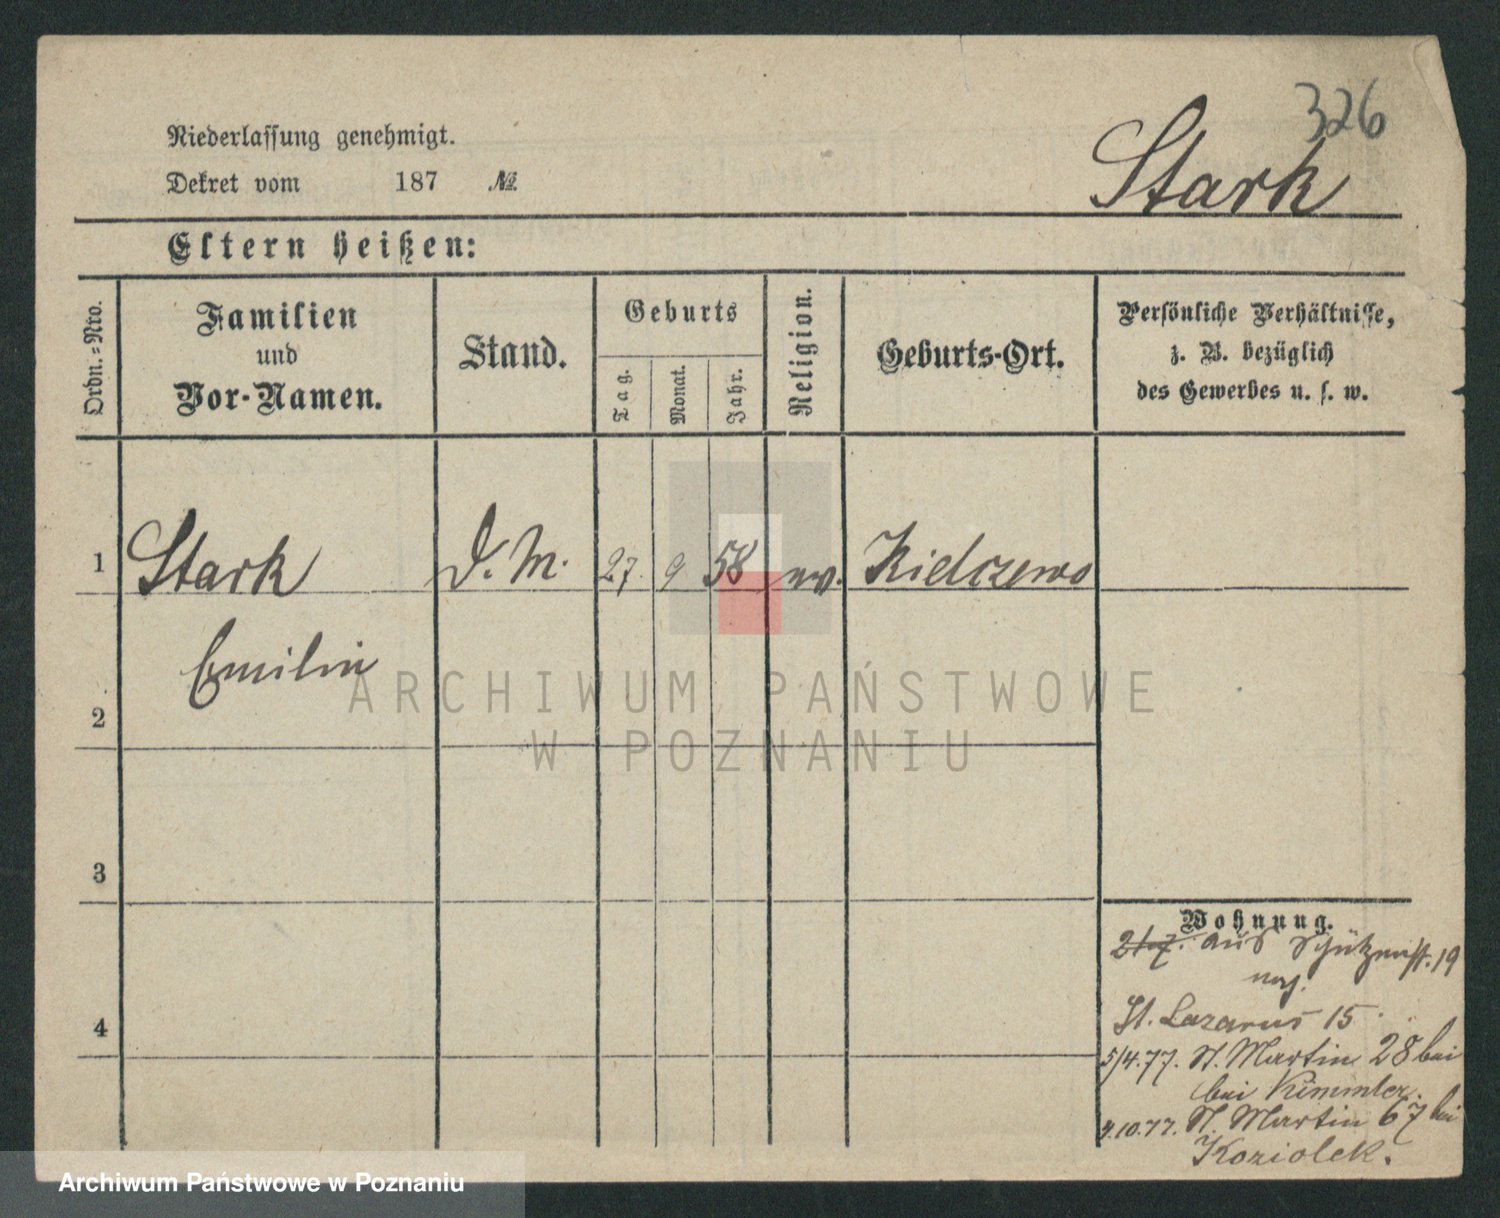 326
Niederlassung genehmigt.
Dekret vom 187 №
Stark
Eltern heißen:
Ordn.=Nro.
Familien
und
Vor-Namen.
Stand.
Geburts
Tag.
Monat.
Jahr.
Religion.
Geburts-Ort.
Persönliche Verhältnisse,
z. B. bezüglich
des Gewerbes u. s. w.
1 Stark D. M. 27. 9 58 ev. Kielczewo
Emilie
2
3
4
Wohnung.
aus Schützenstr. 19
nach
St. Lazarus 15
5/4.77. St. Martin 28 bei
bei Kimmler.
4.10.77. St. Martin 67 bei
Koziolek.
ARCHIWUM PAŃSTWOWE
W POZNANIU
Archiwum Państwowe w Poznaniu